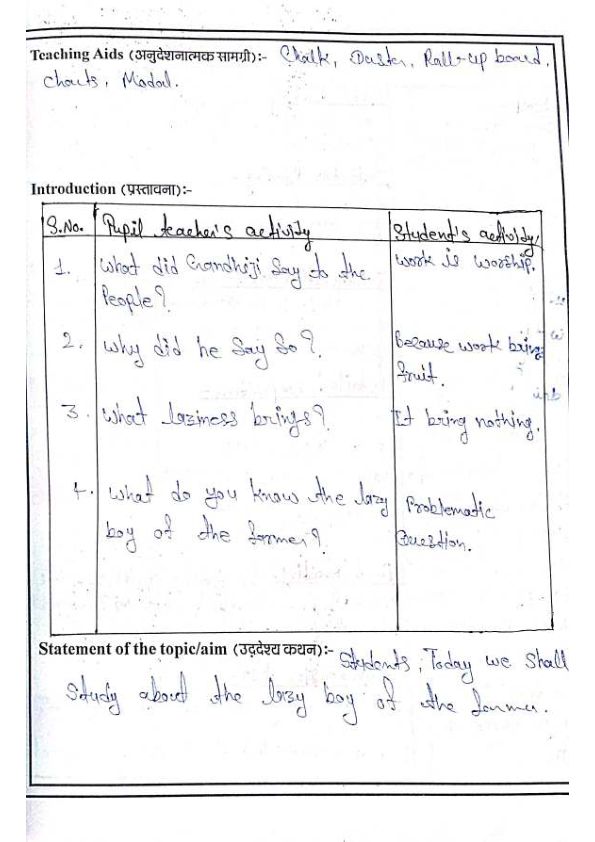 Teaching Aids (अनुदेशनात्मक सामग्री):- Chalk, Duster, Roll-up board,
Charts, Modal.
Introduction (प्रस्तावना):-
S.No. Pupil teacher's activity Student's activity
1. What did Gandhiji Say to the work is worship.
People?
2. Why did he Say So? Because work bring
fruit.
3. What laziness brings? It bring nothing.
4. What do you know the lazy Problematic
boy of the farmer? Question.
Statement of the topic/aim (उद्देश्य कथन):- Students, Today we Shall
Study about the lazy boy of the farmer.